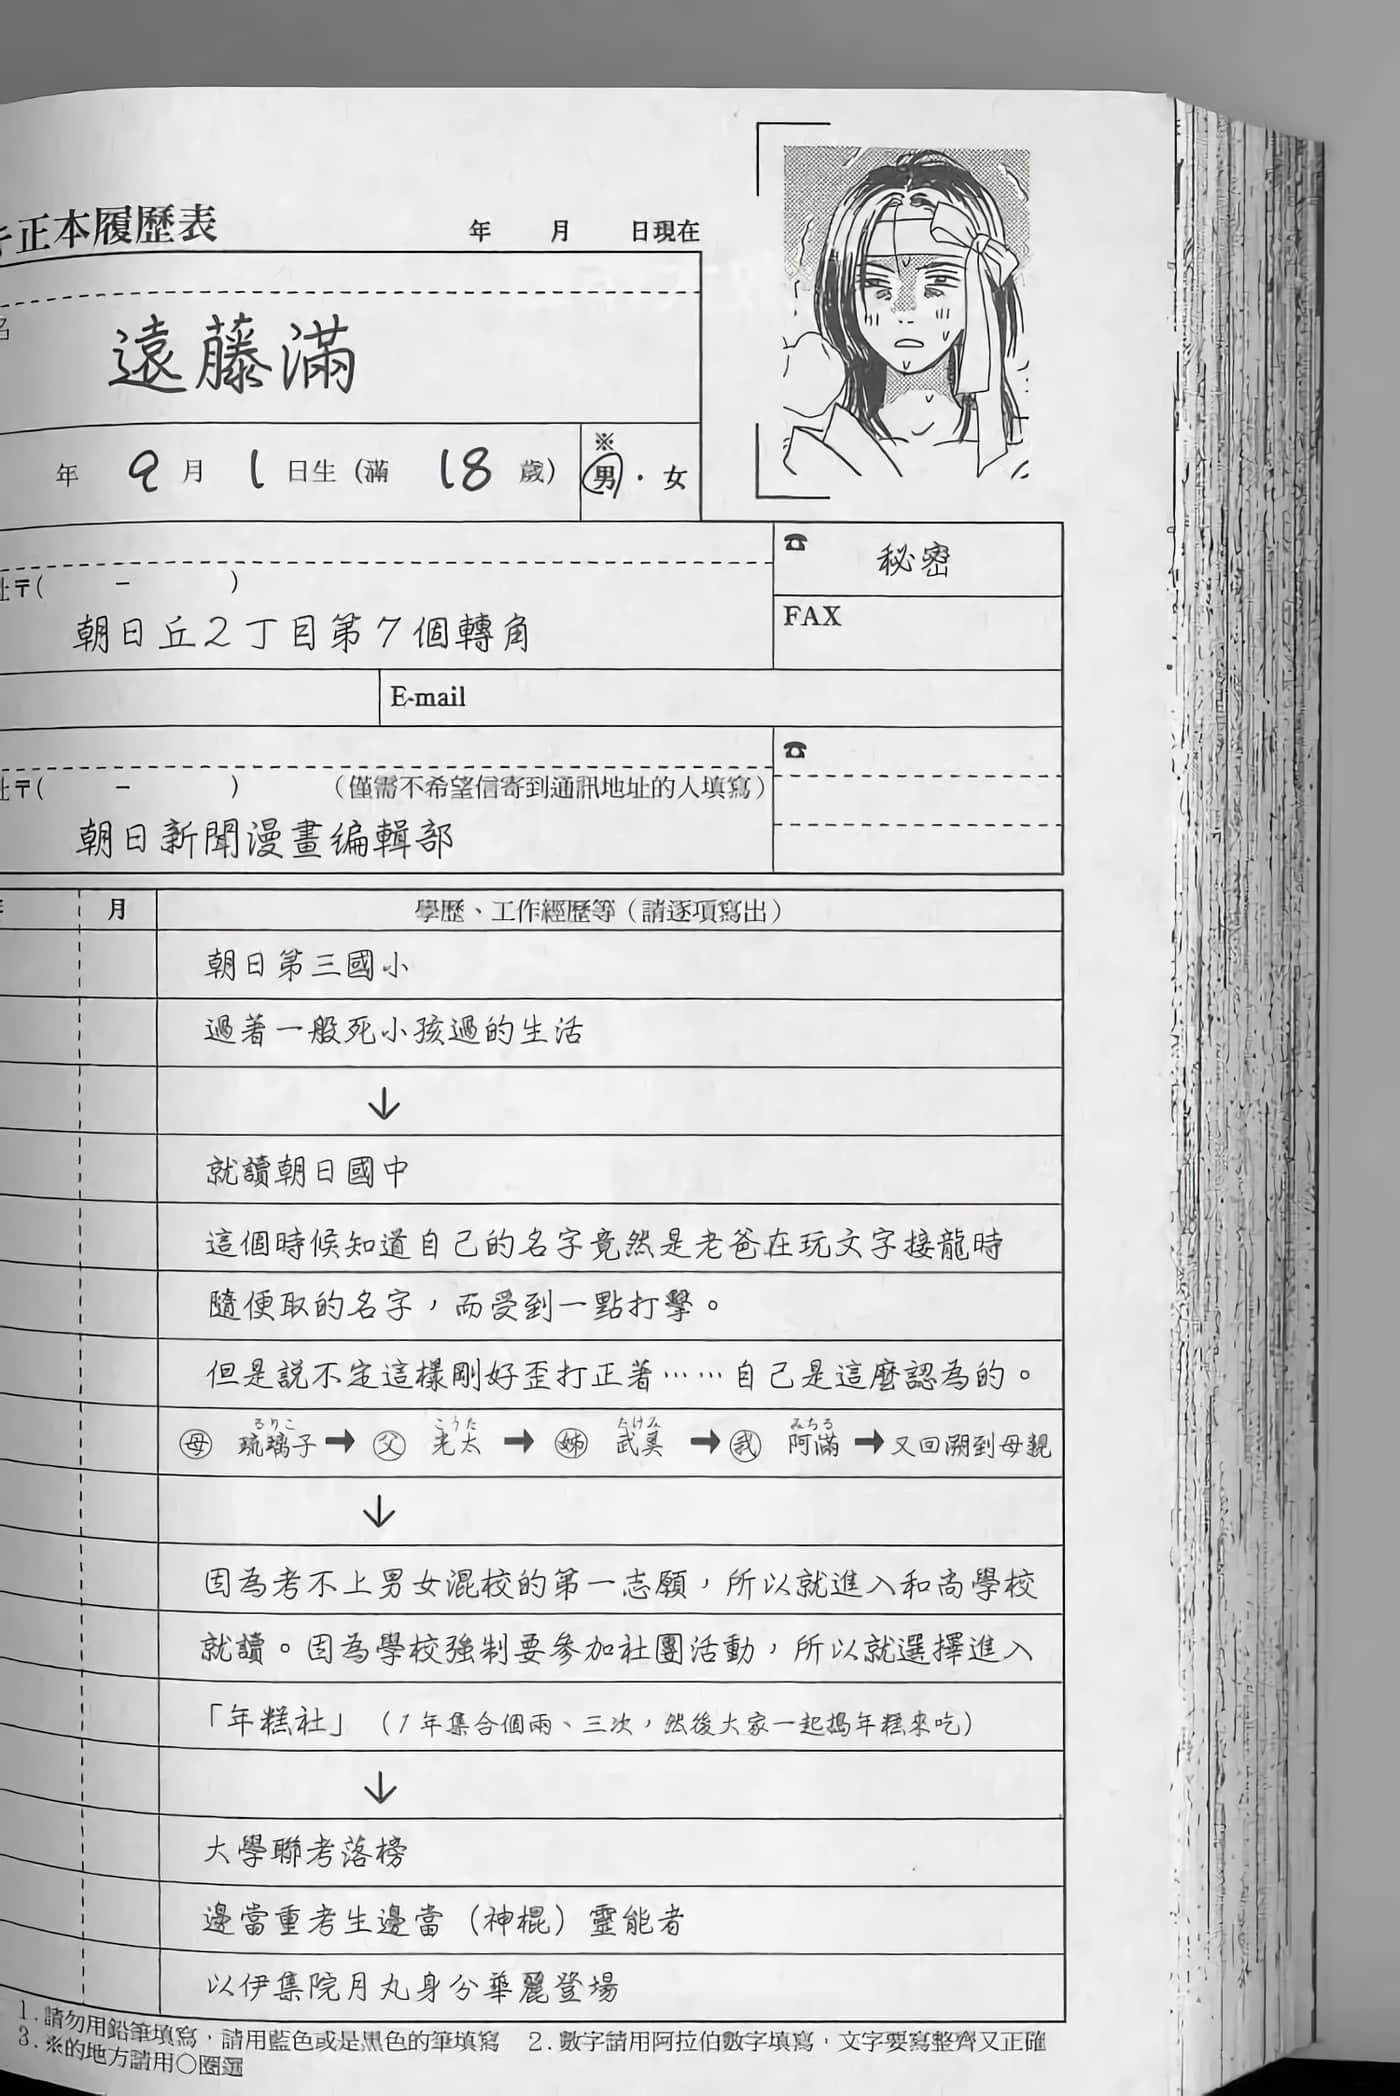 正本履歷表
年 月 日現在
名
遠藤滿
年 9月 1日生（滿 18 歲）
※
男・女
址〒( − )
朝日丘2丁目第7個轉角
☎ 秘密
FAX
E-mail
址〒( − ) （僅需不希望信寄到通訊地址的人填寫）
朝日新聞漫畫編輯部
☎
年 月 學歷、工作經歷等（請逐項寫出）
朝日第三國小
過著一般死小孩過的生活
↓
就讀朝日國中
這個時候知道自己的名字竟然是老爸在玩文字接龍時
隨便取的名字，而受到一點打擊。
但是說不定這樣剛好歪打正著……自己是這麼認為的。
るりこ こうた たけみ みちる
母 琉璃子➡父 光太➡姊 武美➡我 阿滿➡又回溯到母親
↓
因為考不上男女混校的第一志願，所以就進入和尚學校
就讀。因為學校強制要參加社團活動，所以就選擇進入
「年糕社」（1年集合個兩、三次，然後大家一起搗年糕來吃）
↓
大學聯考落榜
邊當重考生邊當（神棍）靈能者
以伊集院月丸身分華麗登場
1.請勿用鉛筆填寫，請用藍色或是黑色的筆填寫 2.數字請用阿拉伯數字填寫，文字要寫整齊又正確
3.※的地方請用○圈選